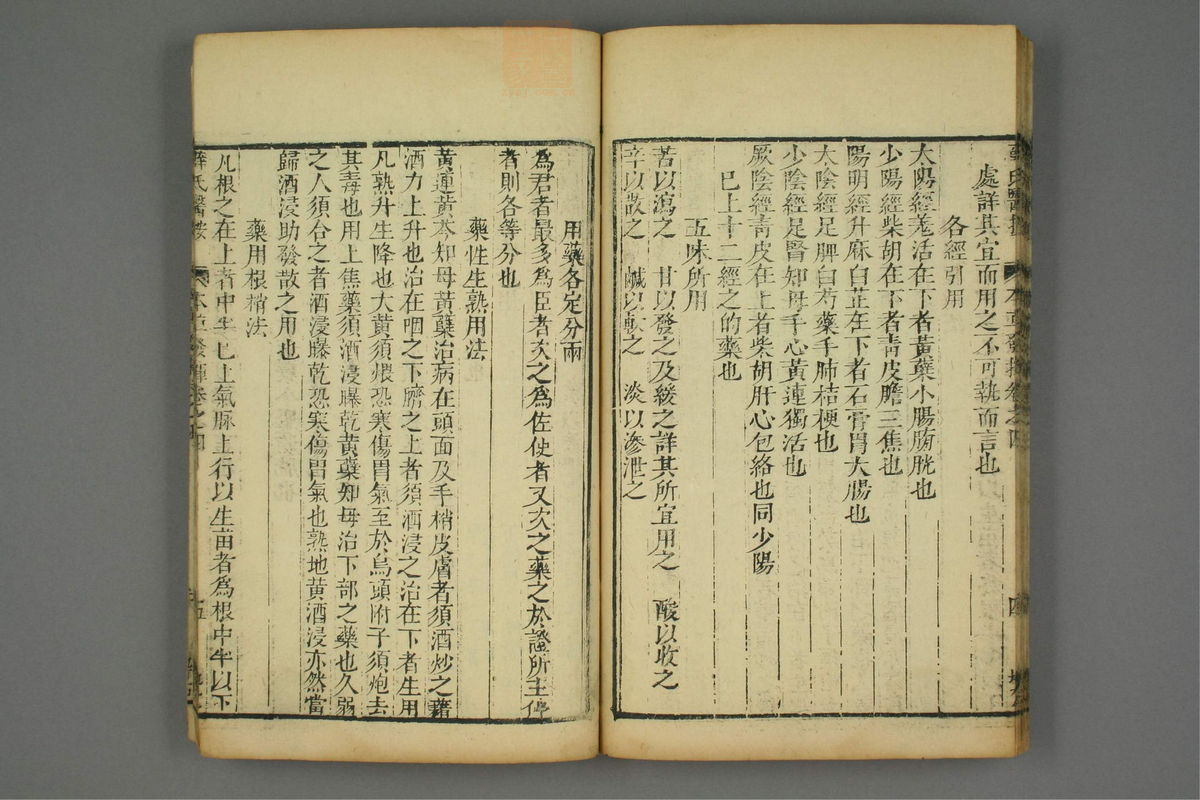 處詳其宜而用之不可執而言也
各經引用
太陽經羗活在下者黃蘗小腸膀胱也
少陽經柴胡在下者靑皮膽三焦也
陽明經升麻白芷在下者石膏胃大腸也
太陰經足脾白芍藥手肺桔梗也
少陰經足腎知母手心黃連獨活也
厥陰經靑皮在上者柴胡肝心包絡也同少陽
巳上十二經之的藥也
五味所用
苦以瀉之 甘以發之及緩之詳其所宜用之 酸以收之
辛以散之 鹹以軟之 淡以滲泄之
用藥各定分兩
爲君者最多爲臣者次之爲佐使者又次之藥之於證所主停
者則各等分也
藥性生熟用法
黃連黃芩知母黃蘗治病在頭面及手梢皮膚者須酒炒之藉
酒力上升也治在咽之下臍之上者須酒浸之治在下者生用
凡熟升生降也大黃須煨恐寒傷胃氣至於烏頭附子須炮去
其毒也用上焦藥須酒浸曝乾黃蘗知母治下部之藥也久弱
之人須合之者酒浸曝乾恐寒傷胃氣也熟地黃酒浸亦然當
歸酒浸助發散之用也
藥用根梢法
凡根之在上者中半巳上氣脈上行以生苗者爲根中半以下
薛氏醫按 本草發揮卷之四